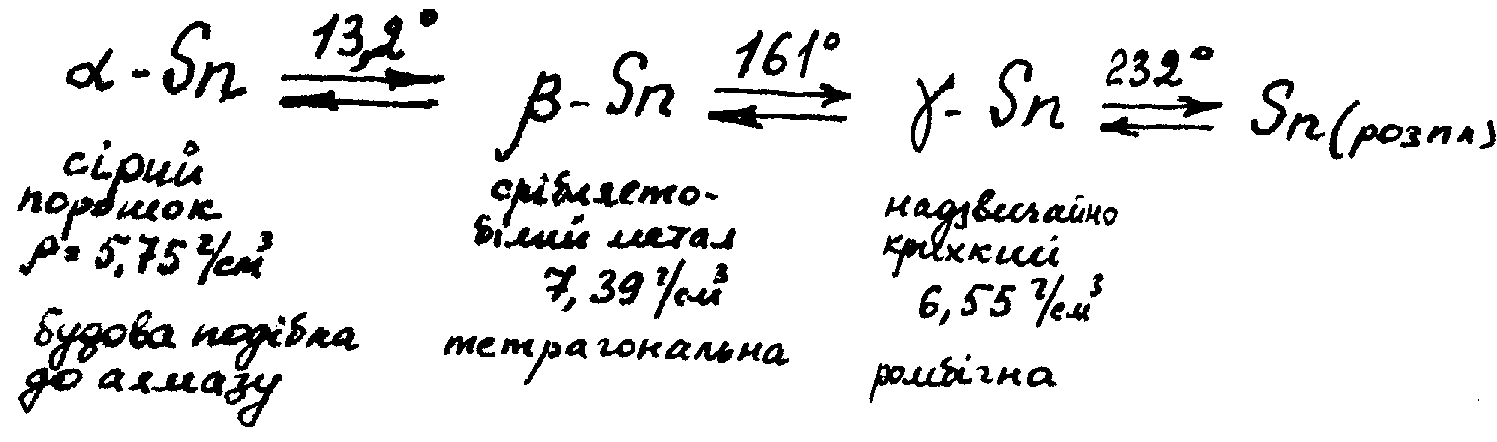 α-Sn ⇄ 13,2° β-Sn ⇄ 161° γ-Sn ⇄ 232° Sn (розпл)
сірий
порошок
ρ = 5,75 г/см³
будова подібна
до алмазу
сріблясто-
білий метал
7,39 г/см³
тетрагональна
надзвичайно
крихкий
6,55 г/см³
ромбічна